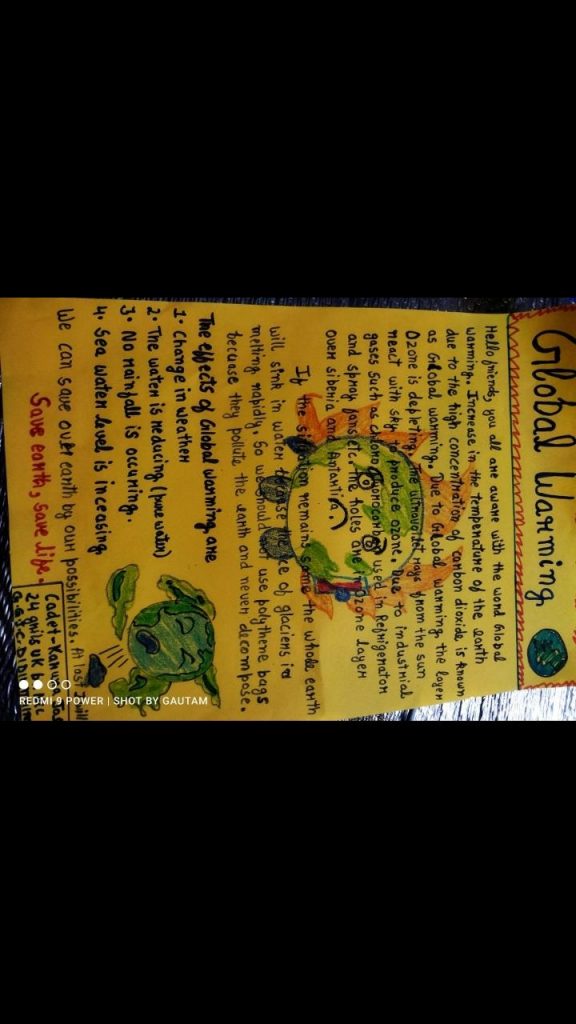 Global Warming
Hello friends, you all are aware with the word Global
Warming. Increase in the temperature of the earth
due to the high concentration of carbon dioxide is known
as Global warming. Due to Global Warming the layer
Ozone is depleting. The ultraviolet rays from the sun
react with sky produce ozone. Due to industrial
gases such as used in Refrigerator
and spray fans etc. The holes are Ozone layer
over siberia and
If the remains same the whole earth
will sink in water of glaciers is
melting rapidly. So we should use polythene bags
becuase they pollute the earth and never decompose.
The effects of Global warming are
1. Change in weather
2. The water is reducing (pure water)
3. No rainfall is occuring.
4. Sea water level is inceasing
We can save our earth by our possibilities. At last
Save earth, save life.
Cadet-
24 girls UK
REDMI 9 POWER | SHOT BY GAUTAM